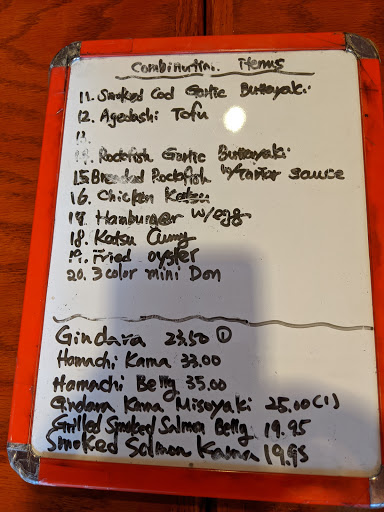 Combination Items
11. Smoked Cod Garlic Butteryaki
12. Agedashi Tofu
13
14. Rockfish Garlic Butteryaki
15. Breaded Rockfish w/Tartar sauce
16. Chicken Katsu
17. Hamburger w/egg
18. Katsu Curry
19. Fried oyster
20. 3 color mini Don
Gindara 23.50 ①
Hamachi Kama 33.00
Hamachi Belly 35.00
Gindara Kama Misoyaki 25.00 (1)
Grilled Smoked Salmon Belly 19.95
Smoked Salmon Kama 19.95